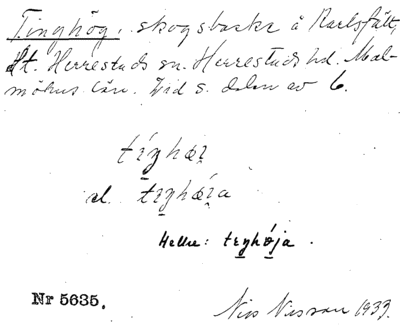 Tinghög, skogsbacke å Karlsfält,
St. Herrestads sn. Herrestads hd. Mal-
möhus län. Vid s. delen av 6.
tíŋhøi
el. tıŋhǿia
Hellre: teŋhǿja.
Nr 5635.
Nils Nilsson 1933.